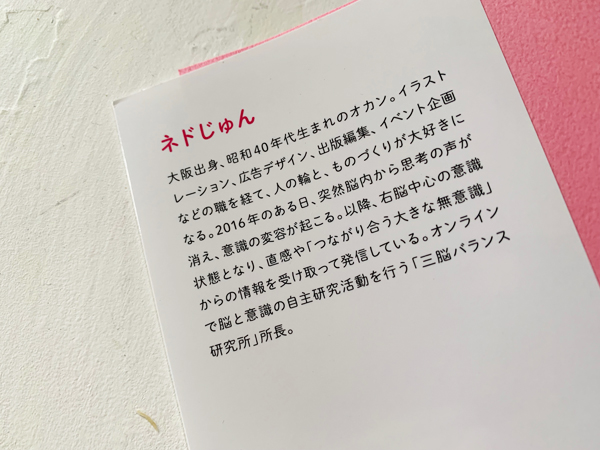 ネドじゅん
大阪出身、昭和40年代生まれのオカン。イラスト
レーション、広告デザイン、出版編集、イベント企画
などの職を経て、人の輪と、ものづくりが大好きに
なる。2016年のある日、突然脳内から思考の声が
消え、意識の変容が起こる。以降、右脳中心の意識
状態となり、直感や「つながり合う大きな無意識」
からの情報を受け取って発信している。オンライン
で脳と意識の自主研究活動を行う「三脳バランス
研究所」所長。